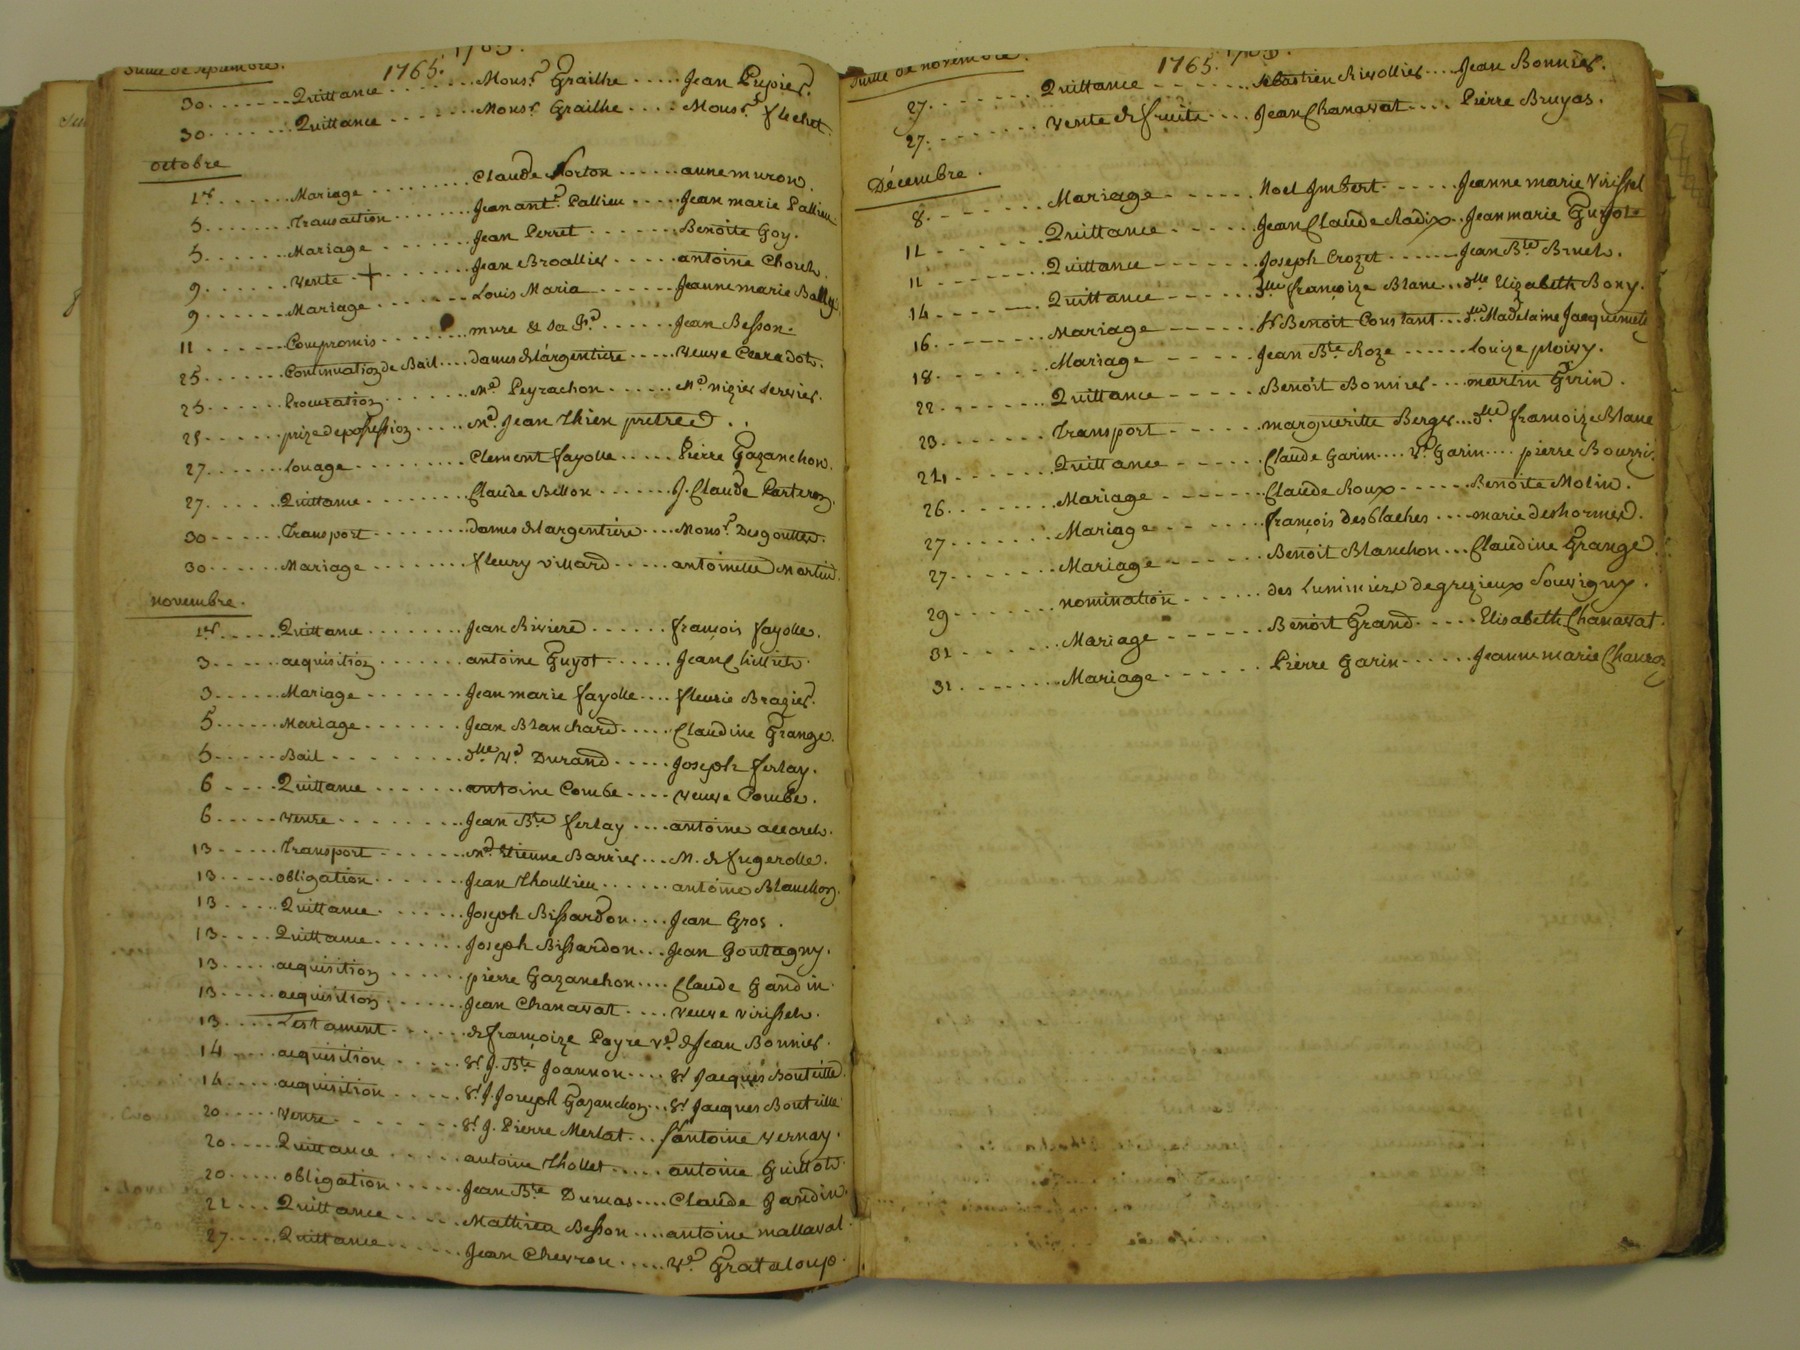 Suitte de septembre. 1765.
30 Quittance Monsr. Grailhe Jean Pupier.
30 Quittance Monsr. Grailhe Monsr. flechet
octobre
1er Mariage Claude Morton anne muron.
5 Transaction Jean ant. Pallieu Jean marie Pallieu
5 Mariage Jean Perret Benoite Goy.
9 Vente + Jean Broallier antoine
9 Mariage Louis Maria Jeanne marie Bally
11 Compromis mure & sa Jean Besson.
25 Continuation de Bail dames de l'argentiere veuve
25 Procuration Me Peyrachon Me nizier
25 prize de possession Me. Jean Thien pretre
27 louage Clement fayolle Pierre Gazanchon.
27 Quittance Claude Billon J. Claude
30 Transport dames de largentiere Monsr. Desgouttes.
30 Mariage fleury villard antoinette Martin.
novembre.
1er Quittance Jean Riviere françois fayolle.
3 acquisition antoine Guyot Jean
3 Mariage Jean marie fayolle fleurie Brazier.
5 Mariage Jean Blanchard Claudine Grange.
5 Bail dlle ve Durand Joseph ferlay.
6 Quittance antoine Combe veuve Combe.
6 vente Jean Bte ferlay antoine
13 Transport Me. Etienne Barrier M. de fugerolle.
13 obligation Jean Thoullieu antoine Blanchon.
13 Quittance Joseph Bissardon Jean Gros.
13 Quittance Joseph Bissardon Jean Goutagny.
13 acquisition pierre Gazanchon Claude Gandin.
13 acquisition Jean Chanavat veuve
13 Testament de françoize Payre ve. de Jean Bonnier.
14 acquisition Sr J. Bte Joannon Sr Jacques Bouteille
14 acquisition Sr. J. Joseph Gazanchon Sr Jacques Bouteille
20 vente Sr J. Pierre Merlat antoine vernay.
20 Quittance antoine Thollet antoine
20 obligation Jean Bte Dumas Claude Jandin.
22 Quittance Mathieu Besson antoine mallaval
27 Quittance Jean Chevron ve. Grataloup.
Suitte de novembre. 1765.
27 Quittance sebastien Rivollier Jean Bonnier.
27 vente de fruits Jean Chanavat Pierre Bruyas.
Décembre.
8 Mariage Noel Imbert Jeanne marie
11 Quittance Jean Claude Radix Jean marie Guyot
11 Quittance Joseph Crozet Jean Bte
14 Quittance dlle françoize Blanc dlle Elizabeth Bony.
16 Mariage Sr Benoit Constant dlle Madelaine Jacquemet
18 Mariage Jean Bte Roze Louize
22 Quittance Benoit Bonnier martin Girin.
23 Transport margueritte Berger dlle françoize Blanc
24 Quittance Claude Garin ve Garin pierre
26 Mariage Claude Roux Benoite Molin.
27 Mariage françois desblaches marie deshormes.
27 Mariage Benoit Blanchon Claudine Grange.
29 nomination des Luminiers de grezieux Souvigny.
31 Mariage Benoit Grand Elisabeth Chanavat.
31 Mariage Pierre Garin Jeanne marie